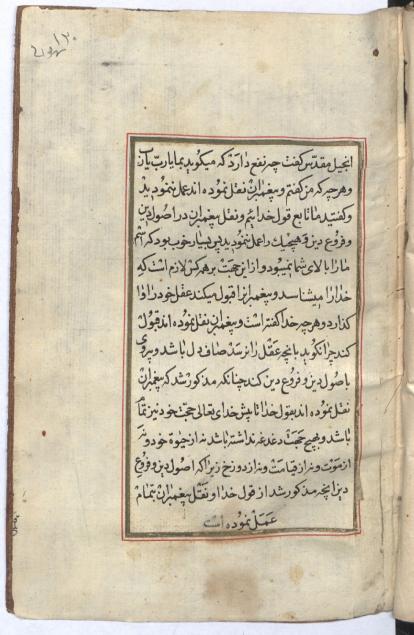 ۱۳۰
انجیل مقدّس گفت چه نفع دارد که میکوید بما یا ربّ یا ربّ
وهرچه که من گفتم و پیغمبران نقل نموده اند عمل ننمودید
وکفتید ما تابع قول خدائیم و نقل پیغمبران در اصول دین
وفروع دین وهیچیك را عمل ننمودید پس بسیار خوب بود که اسم
ما را بالای شما نمیبود و از این جهت بر همه کس لازم است که
خدا را میشناسد و پیغمبر را قبول میکند عقل خود را وا
کذارد وهرچه خدا کفته است و پیغمبران نقل نموده اند قبول
کند چرا نکوید بآنچه عقل را نرسد صاف دل باشد و پیروی
باصول دین و فروع دین کند چنانکه مذکور شد که پیغمبران
نقل نموده اند بقول خدا تا پیش خدای تعالی حجّت خود نیز تمام
باشد و بهیچ حجّت دغدغه نداشته باشد نه از حیوة خود و نه
از موت و نه از قیامت و نه از دوزخ زیرا که اصول دین و فروع
دین آنچه مذکور شد از قول خدا و نقل پیغمبران بتمام
عمل نموده است